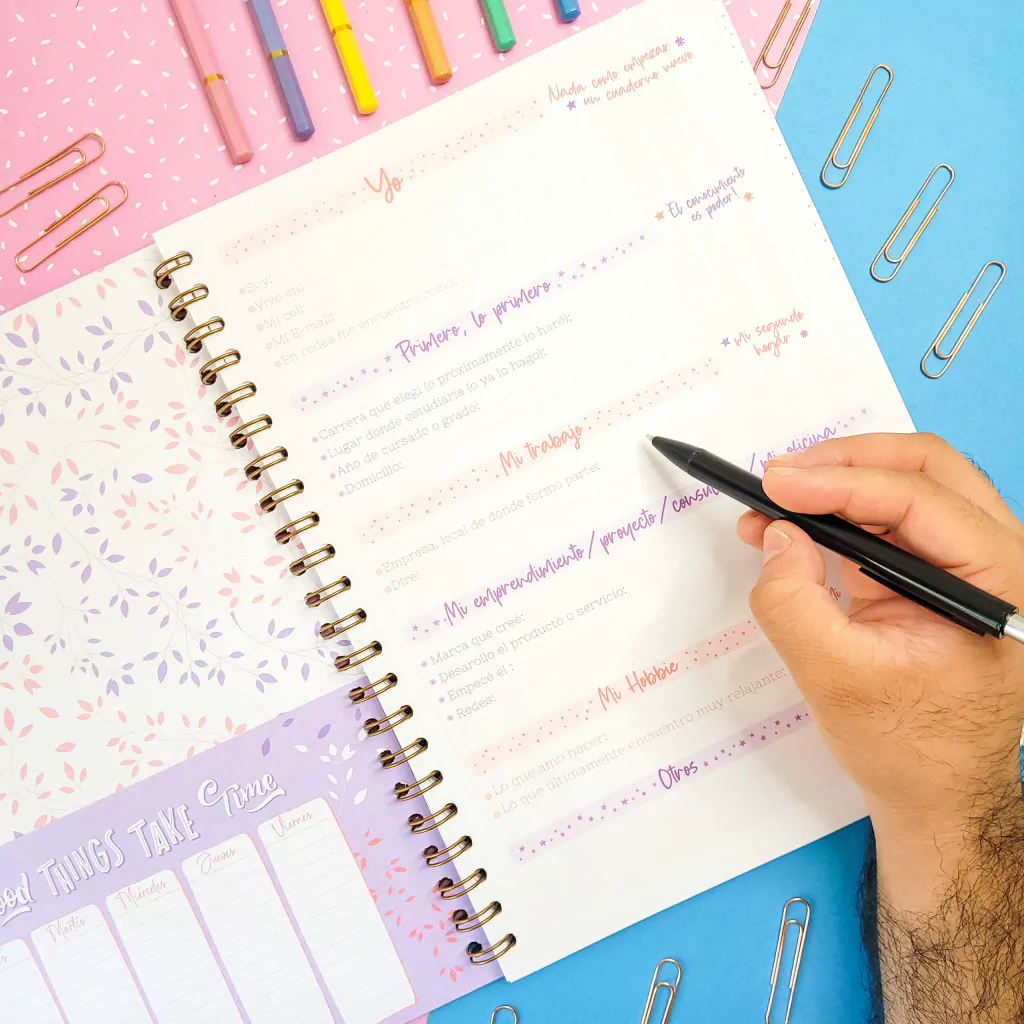 Nada como empezar
un cuaderno nuevo
Yo
Soy:
Vivo en:
Mi cel:
Mi E-mail:
En redes me encuentro como:
El conocimiento
es poder!
Primero, lo primero
Carrera que elegí (o próximamente lo haré):
Lugar donde estudiaría (o ya lo hago):
Año de cursado o grado:
Domicilio:
mi segundo
hogar
Mi trabajo
Empresa, local de donde formo parte:
Dire:
Mi emprendimiento / proyecto / / Mi oficina
Marca que creé:
Desarollo el producto o servicio:
Empecé el :
Redes:
Mi
Mi Hobbie
Lo que amo hacer:
Lo que últimamente encuentro muy relajante:
Otros
THINGS TAKE Time
Martes
Miércoles
Jueves
Viernes